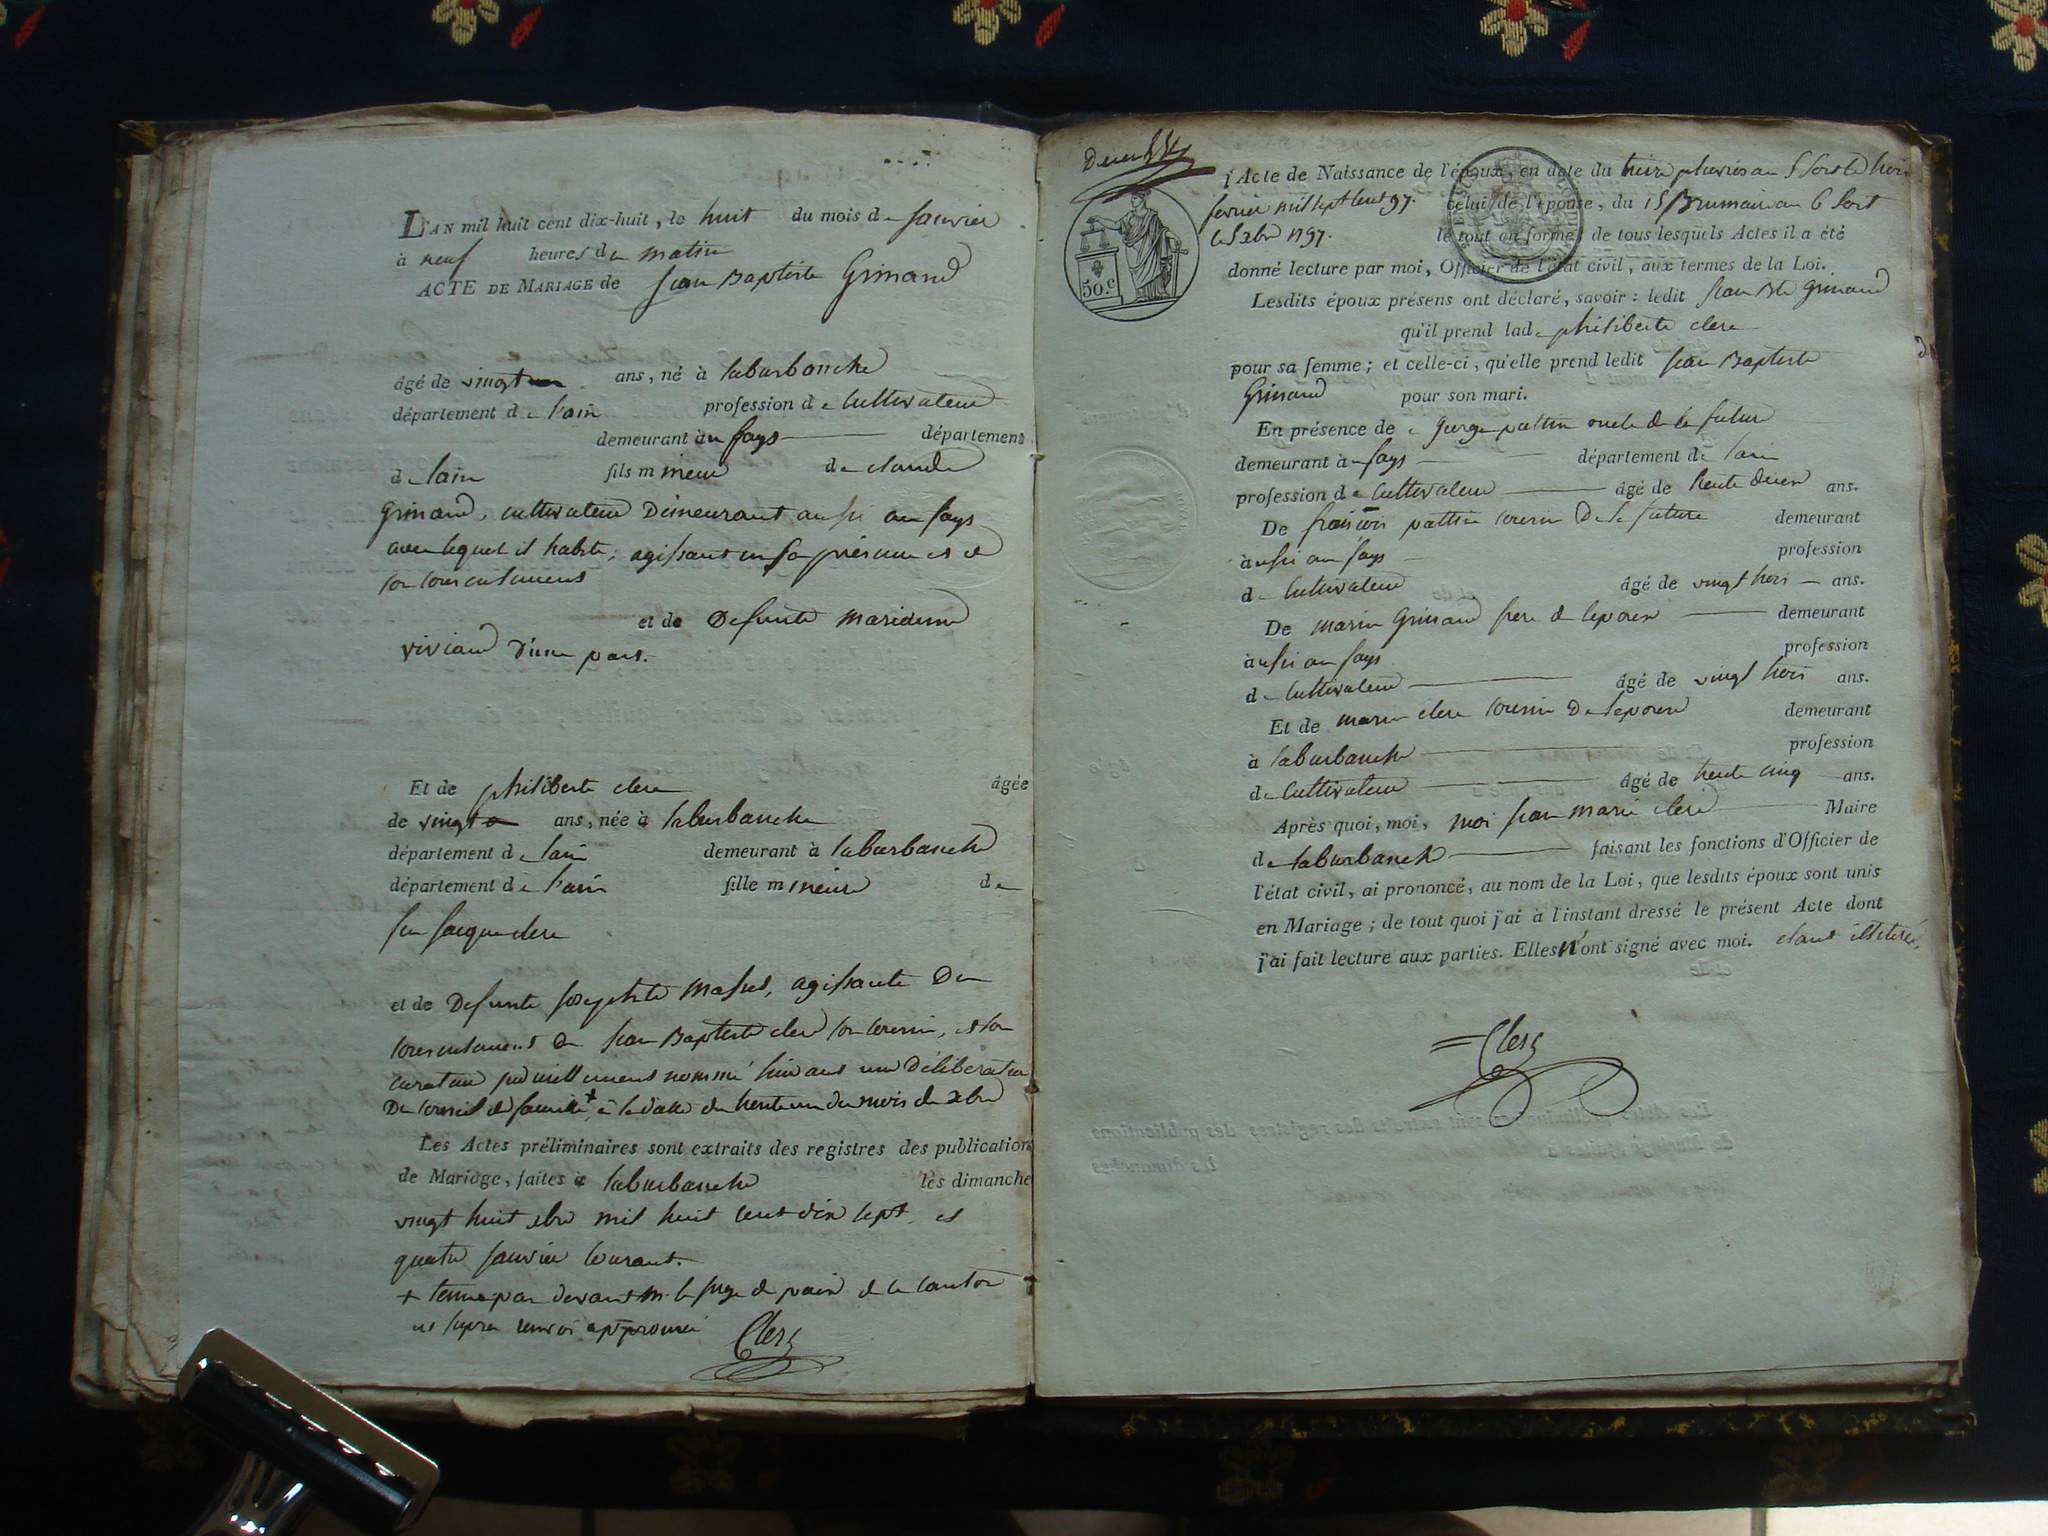 L'AN mil huit cent dix-huit, le huit du mois de janvier
à neuf heures du matin
ACTE DE MARIAGE de jean Baptiste Grinand
âgé de vingt ans, né à laburbanche
département de l'ain profession de Cultivateur
demeurant à au fays département
de lain fils mineur de claude
Grinand, cultivateur Demeurant aussi au fays
avec lequel il habite, agissant en sa présence et de
son consentement
et de Defunte
viviand d'une part.
Et de philiberte clere âgée
de vingt ans, née à laburbanche
département de lain demeurant à laburbanche
département de l'ain fille mineure de
feu jacque clere
et de Defunte josephte, agissante Du
consentement de jean Baptiste clere son cousin, et son
curateur nommé suivant une Déliberation
Du conseil de famille + à la datte du trente un du mois de xbre
Les Actes préliminaires sont extraits des registres des publication
de Mariage, faites à laburbanche les dimanche
vingt huit xbre mil huit cent dix sept et
quatre janvier courant.
+ tenue par devant m. le juge de paix de ce canton
renvoi approuvé Clerc
50.c
l'Acte de Naissance de l'époux, en date du treize pluviose an 5 soit le
fevrier mil sept cent 97. celui de l'épouse, du 15 Brumaire an 6 soit
le 5 xbre 1797. le tout en formes de tous lesquels Actes il a été
donné lecture par moi, Officier de l'état civil, aux termes de la Loi.
Lesdits époux présens ont déclaré, savoir : ledit jean Bte Grinand
qu'il prend lade philiberte clere
pour sa femme ; et celle-ci, qu'elle prend ledit jean Baptiste
Grinand pour son mari.
En présence de george pattin oncle de la futur
demeurant à au fays département de lain
profession de Cultivateur âgé de trente deux ans.
De francois pattin cousin De la future demeurant
à aussi au fays profession
de Cultivateur âgé de vingt trois ans.
De marin Grinand frere de lepoux demeurant
à aussi au fays profession
de Cultivateur âgé de vingt trois ans.
Et de marin clere cousin De lepoux demeurant
à laburbanche profession
de Cultivateur âgé de trente cinq ans.
Après quoi, moi, moi jean marie clere Maire
de laburbanch faisant les fonctions d'Officier de
l'état civil, ai prononcé, au nom de la Loi, que lesdits époux sont unis
en Mariage ; de tout quoi j'ai à l'instant dressé le présent Acte dont
j'ai fait lecture aux parties. Elles n'ont signé avec moi. etant
Clerc